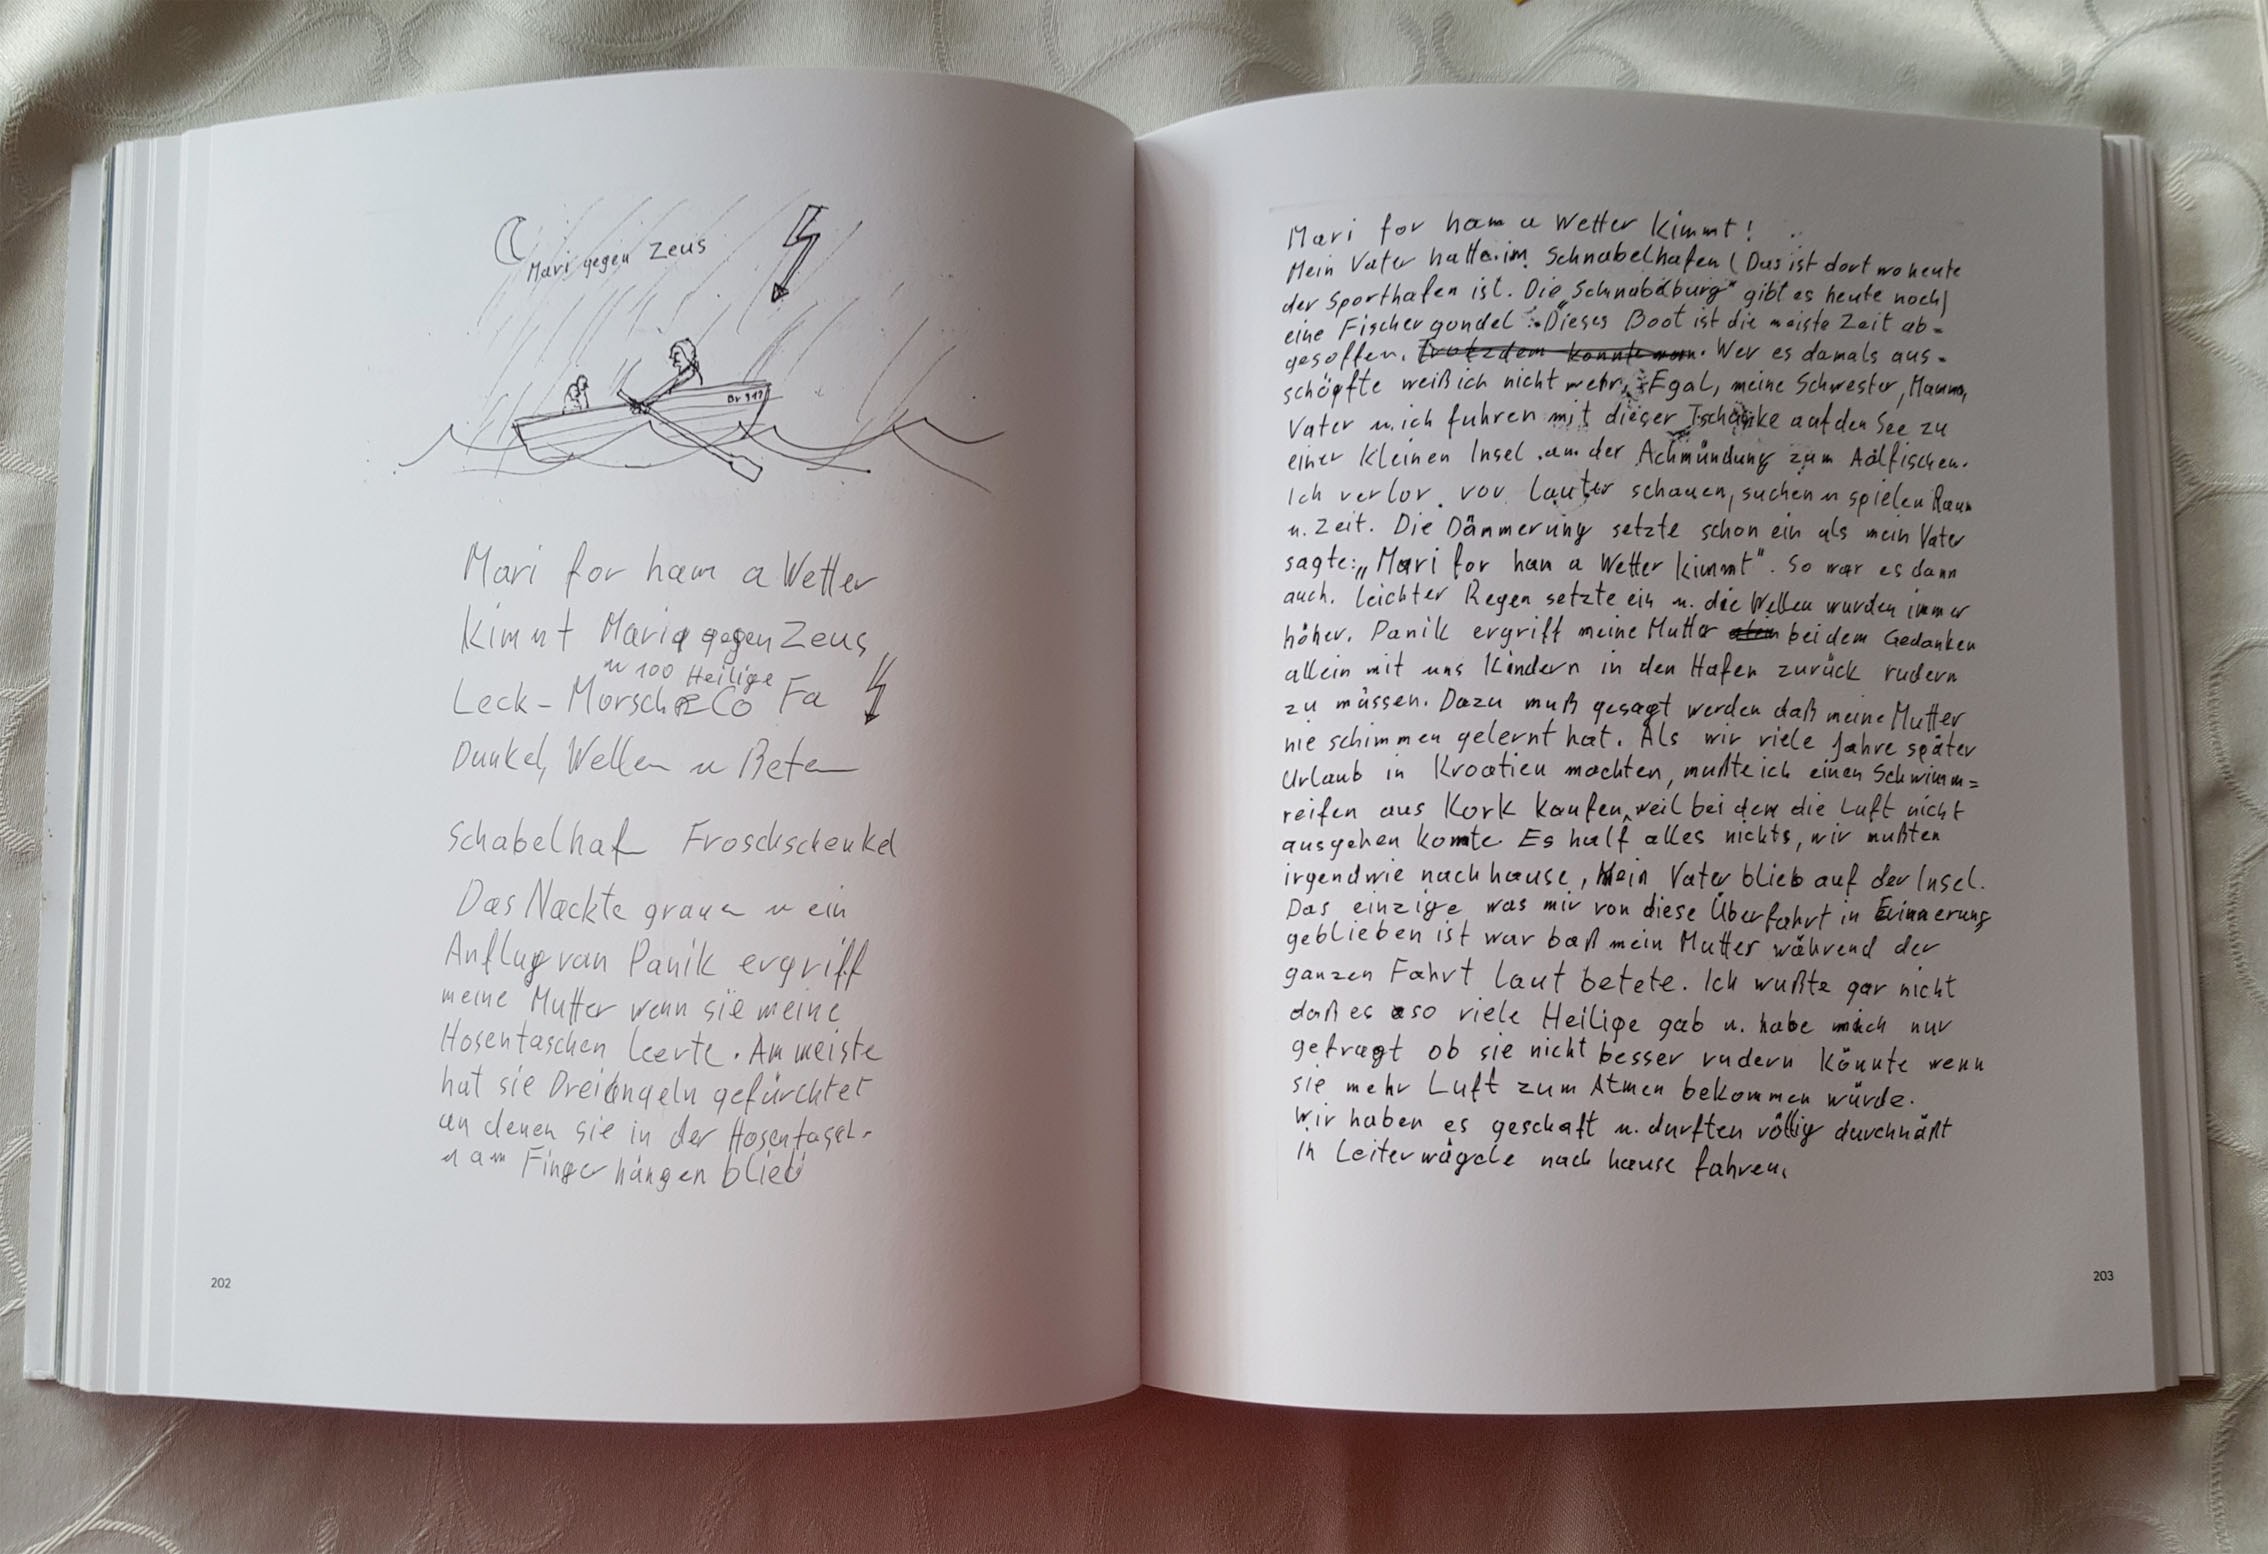 Mari gegen Zeus
Br 917
Mari for ham a Wetter
kimmt Maria gegen Zeus
u 100 Heilige
Leck - Morsch & Co Fa
Dunkel, Wellen u Beten
Schabelhafn Froschschenkel
Das Nackte grauen u ein
Anflug von Panik ergriff
meine Mutter wenn sie meine
Hosentaschen leerte. Am meiste
hat sie Dreiangeln gefürchtet
an denen sie in der Hosentasch-
am Finger hängen blieb
202
Mari for ham a Wetter kimmt!
Mein Vater hatte im Schnabelhafen (Das ist dort wo heute
der Sporthafen ist. Die „Schnabelburg" gibt es heute noch)
eine Fischergondel. Dieses Boot ist die meiste Zeit ab=
gesoffen. Trotzdem konnte man. Wer es damals aus=
schöpfte weiß ich nicht mehr. Egal, meine Schwester, Mama,
Vater u. ich fuhren mit dieser auf den See zu
einer kleinen Insel an der Achmündung zum Aalfischen.
Ich verlor vor lauter schauen, suchen u spielen Raum
u. Zeit. Die Dämmerung setzte schon ein als mein Vater
sagte: „Mari for ham a Wetter kimmt". So war es dann
auch. Leichter Regen setzte ein u. die Wellen wurden immer
höher. Panik ergriff meine Mutter bei dem Gedanken
allein mit uns Kindern in den Hafen zurück rudern
zu müssen. Dazu muß gesagt werden daß meine Mutter
nie schimmen gelernt hat. Als wir viele Jahre später
Urlaub in Kroatien machten, mußte ich einen Schwimm=
reifen aus Kork kaufen, weil bei dem die Luft nicht
ausgehen konnte. Es half alles nichts, wir mußten
irgendwie nach hause, Mein Vater blieb auf der Insel.
Das einzige was mir von diese Überfahrt in Erinnerung
geblieben ist war daß mein Mutter während der
ganzen Fahrt laut betete. Ich wußte gar nicht
daß es so viele Heilige gab u. habe mich nur
gefragt ob sie nicht besser rudern könnte wenn
sie mehr Luft zum Atmen bekommen würde.
Wir haben es geschaft u. durften völlig durchnäßt
In Leiterwägele nach hause fahren.
203